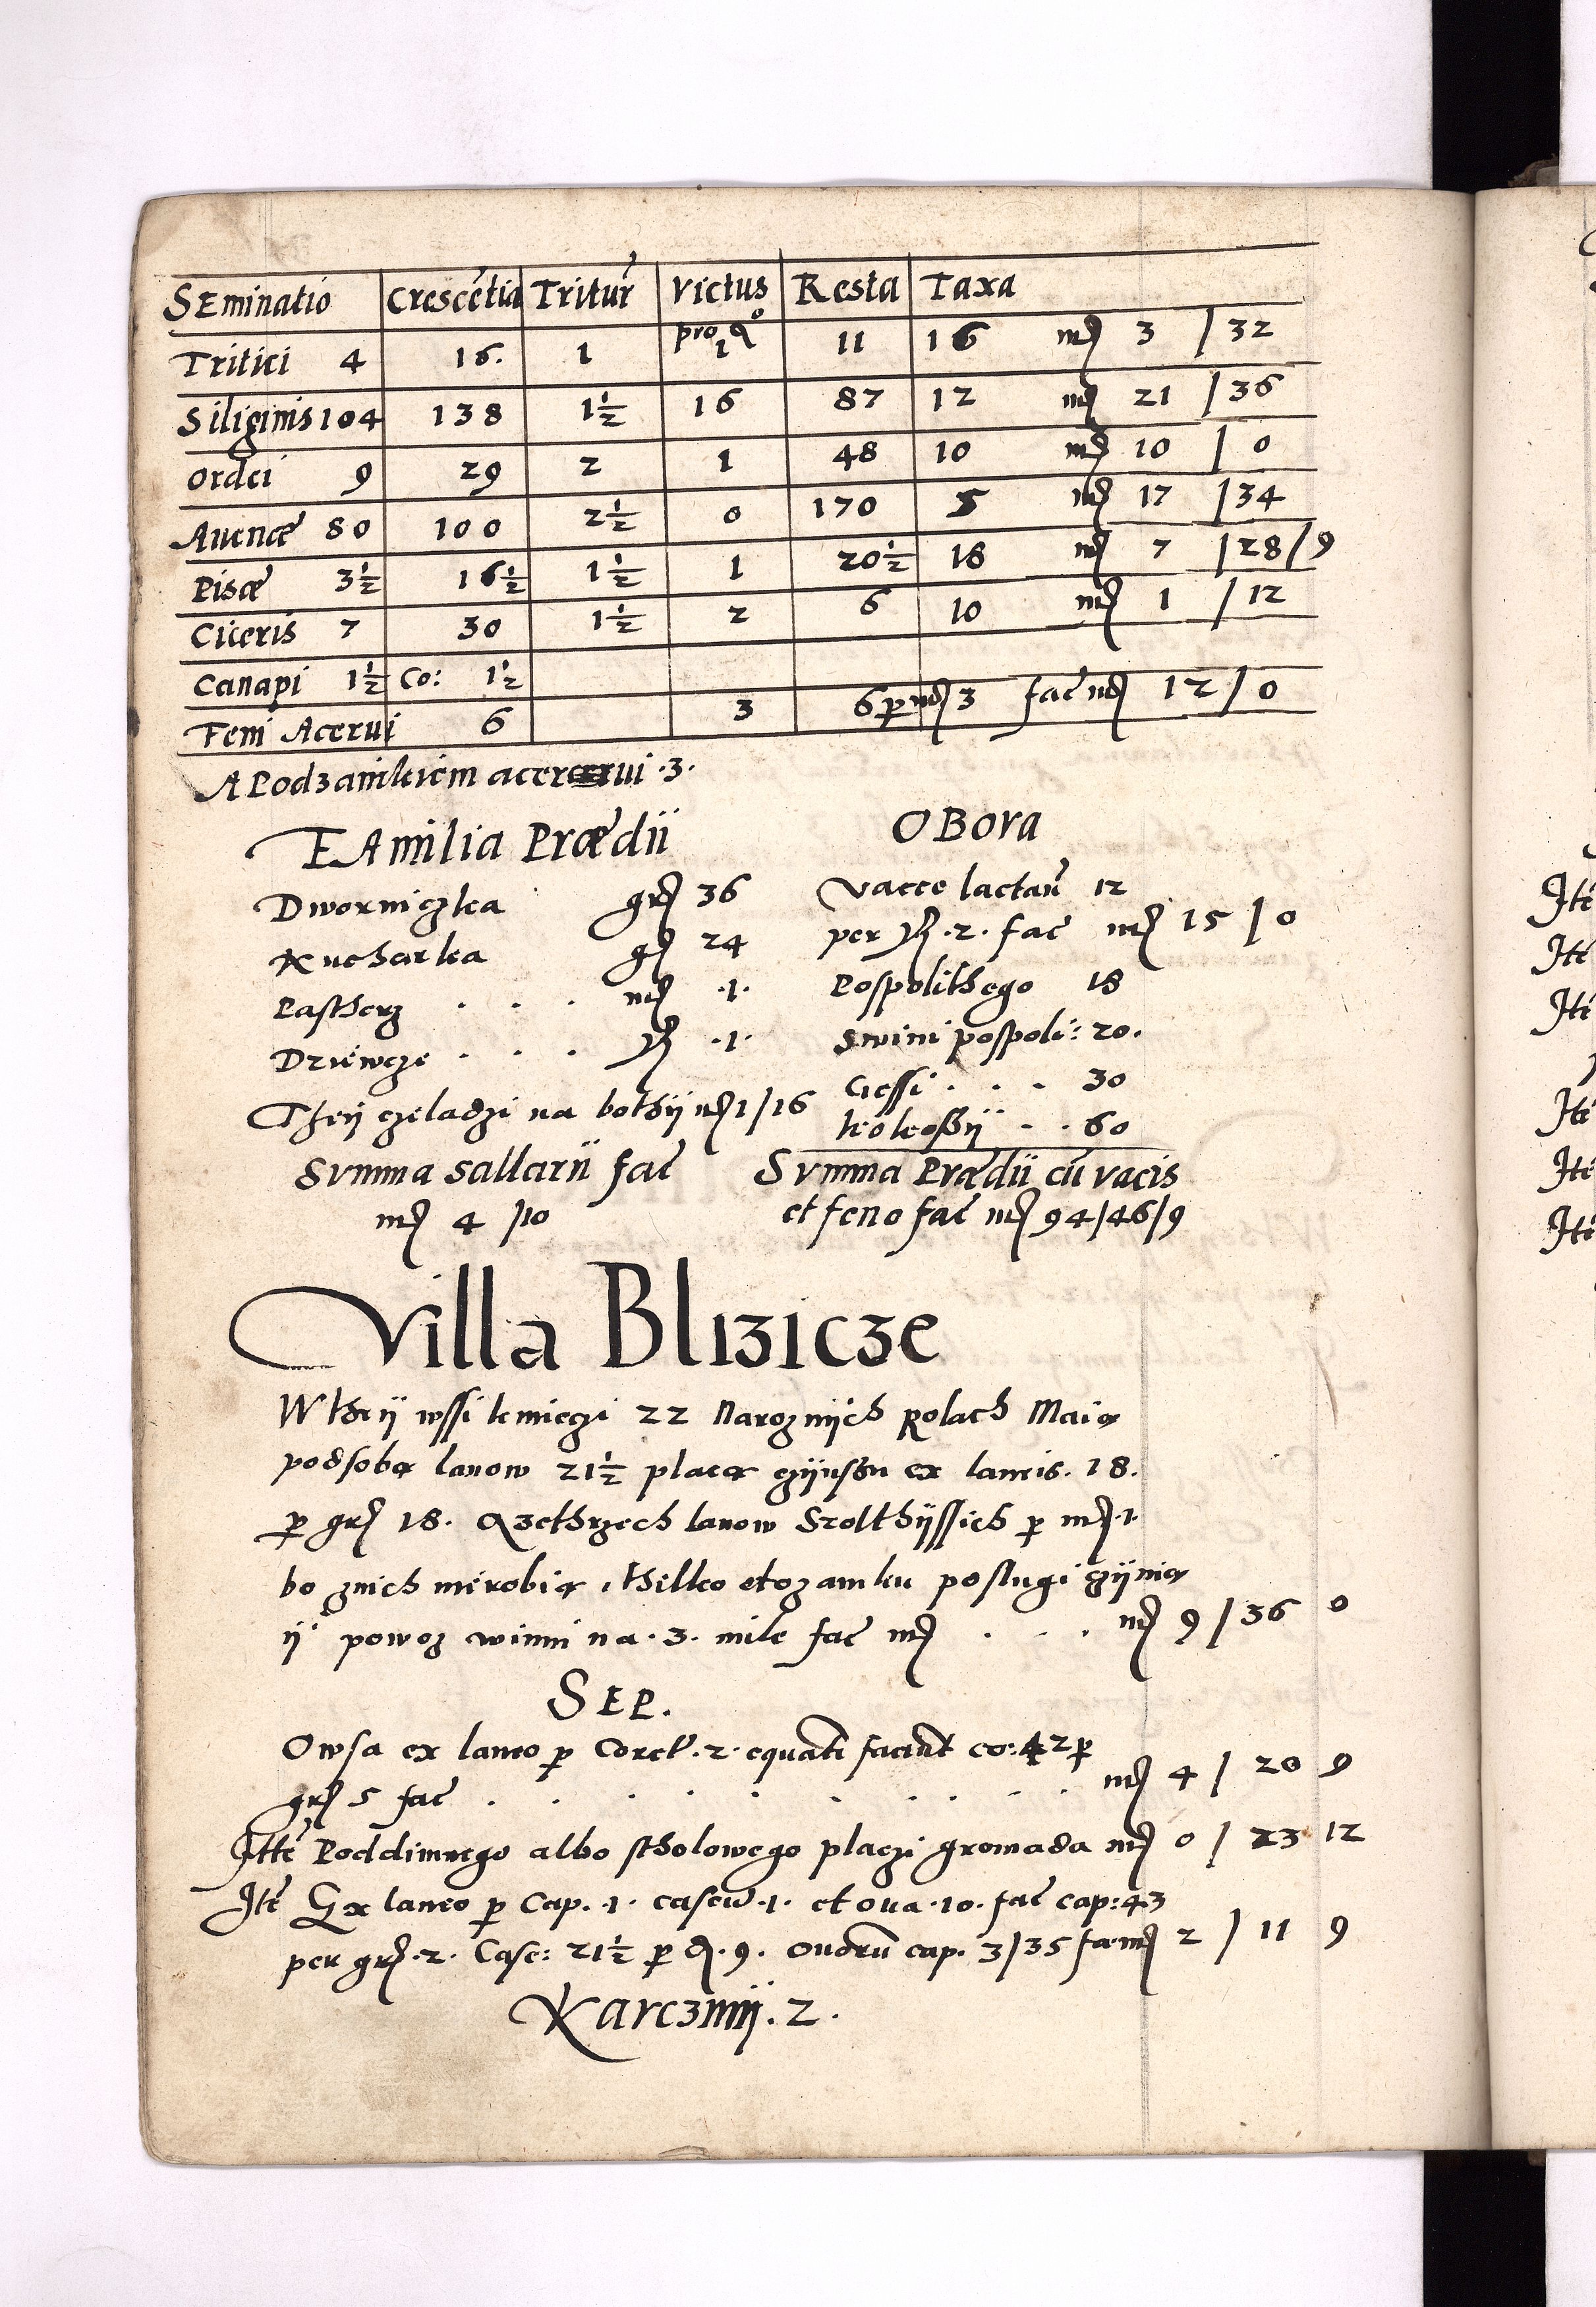 SEminatio Crescētia Tritur̄ Victus Resta Taxa
Tritici 4 16. 1 pro 1 q° 11 16 mr̃ 3 / 32
Siliginis 104 138 1½ 16 87 12 mr̃ 21 / 36
Ordei 9 29 2 1 48 10 mr̃ 10 / 0
Auenæ 80 100 2½ 0 170 5 mr̃ 17 / 34
Pisæ 3½ 16½ 1½ 1 20½ 18 mr̃ 7 / 28 / 9
Ciceris 7 30 1½ 2 6 10 mr̃ 1 / 12
Canapi 1½ Co: 1½
Feni Acerui 6 3 6 ꝑ mr̃ 3 fac̄ mr̃ 12 / 0
A Podzamkiem acerui .3.
FAmilia Prædii
Dworniczka gr̃ 36
Kucharka gr̃ 24
Pastherz . . . mr̃ .1.
Dziewcze . . . .1.
Theÿ czeladzi na bothÿ mr̃ 1/16
Summa sallarii fac̄
mr̃ 4 /10
OBora
Vacce lactan̄ 12
per .2. fac̄ mr̃ 15 / 0
Pospolithego 18
Swini pospoli: 20.
Gessi . . . 30
kokoßÿ . . 60
Summa Prædii cū vacis
et feno fac̄ mr̃ 94/46/9
Villa Blizicze
W theÿ wssi kmieczi 22 Naroznÿch Rolach Maią
podsobą lanow 21½ placą czÿnßu ex laneis. 18.
ꝑ gr̃ 18. Azethrzech lanow Szolthÿssich ꝑ mr̃ .1.
bo znich nierobią, thilko etozamku poslugi czÿnią
ÿ powoz winni na .3. mile fac̄ mr̃ . . . mr̃ 9 / 36 0
SEP.
Owsa ex laneo ꝑ Coret' .2. equati faciunt co: 42 ꝑ
gr̃ 5 fac̄ . . . . . . . . . mr̃ 4 / 20 9
Ittē Poddimnego albo stholowego placzi gromada mr̃ 0 / 23 12
Itē Ex laneo ꝑ Cap. .1. caseū .1. et oua .10. fac̄ cap: 43
per gr̃ .2. Case: 21½ ꝑ .9. ouorū cap. 3/35 fa: mr̃ 2 / 11 9
Karczmÿ. 2.